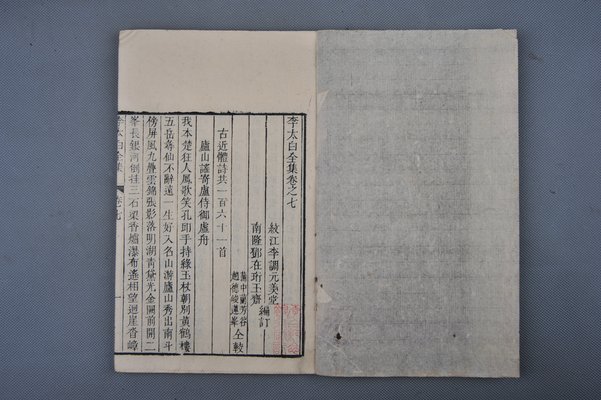 李太白全集卷之七
紋江李調元美堂
南隆鄧在珩玉齋
編訂
蘭芳谷
趙德峻蓮峯
仝較
古近體詩共一百六十一首
廬山謠寄盧侍御虛舟
我本楚狂人鳳歌笑孔邱手持綠玉杖朝別黃鶴樓
五岳尋仙不辭遠一生好入名山游廬山秀出南斗
傍屏風九疊雲錦張影落明湖青黛光金闕前開二
峯長銀河倒挂三石梁香爐瀑布遙相望迴崖沓嶂
李太白全集
卷七
一